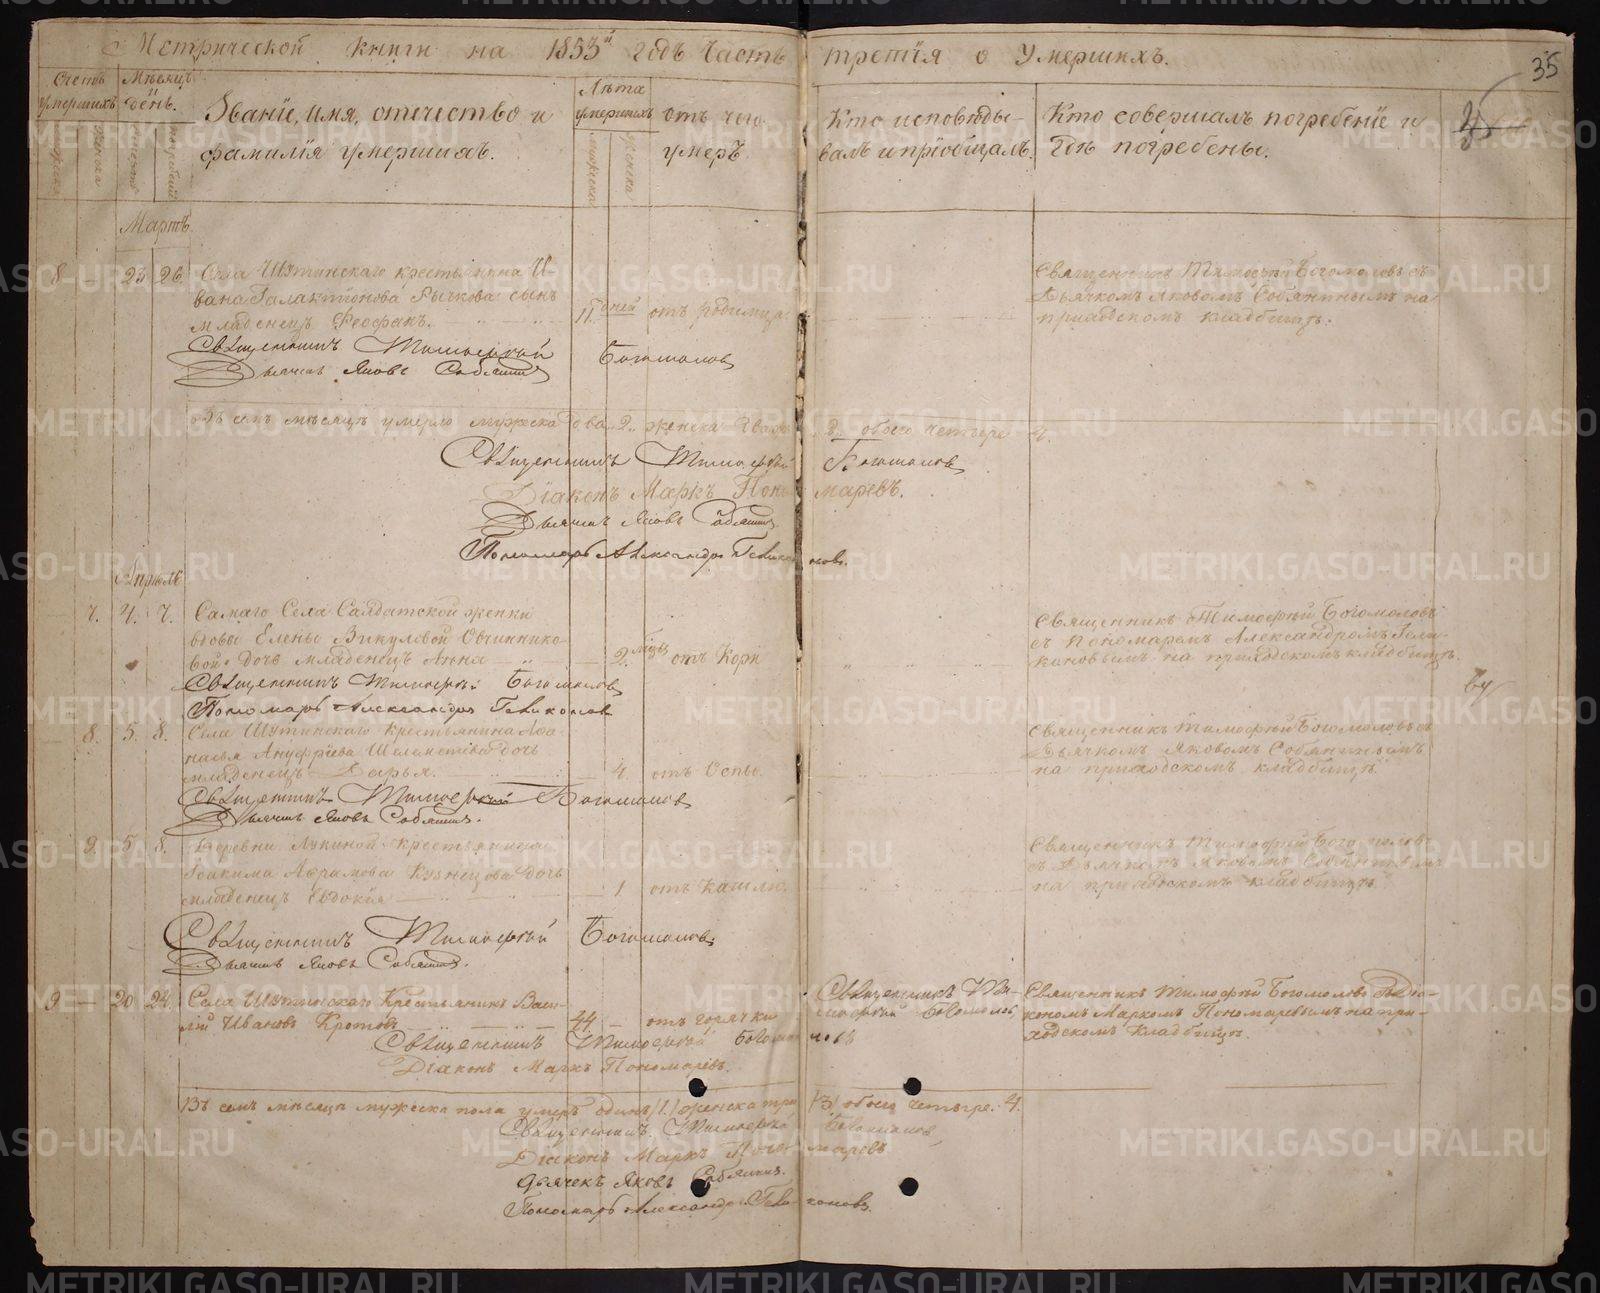 Метрической книги на 1853й годъ Часть третія о Умершихъ.
35
Счетъ умершихъ
Мѣсяцъ и день.
Званіе, имя, отечество и
фамилія умершихъ.
Лѣта умершихъ
отъ чего
умеръ
Кто исповѣды-
валъ и пріобщалъ.
Кто совершалъ погребеніе и
гдѣ погребены.
Мартъ.
8 23 26 Села Шутинскаго крестьянина И-
вана Галактіонова Рычкова сынъ
младенецъ Феофанъ. 11 дней отъ родимца
Священникъ Тимофей Богомоловъ съ
Дьячкомъ Яковомъ Собянинымъ на
приходскомъ кладбищѣ.
Священникъ Тимофей Богомоловъ
Дьячекъ Яковъ Собянинъ
Въ семъ мѣсяцѣ умерло мужеска два 2. женска два 2. обоего четыре 4.
Священникъ Тимофей Богомоловъ
Діаконъ Маркъ Пономаревъ.
Дьячекъ Яковъ Собянинъ
Пономарь Александръ Геликоновъ.
Апрѣль
7. 4. 7. Самаго Села Салдатской женки
вдовы Елены Викуловой Овчиннико-
вой дочь младенецъ Анна 2 мѣсяц отъ Кори
Священникъ Тимофей Богомоловъ
съ Пономаремъ Александромъ Гели-
коновымъ на приходскомъ кладбищѣ.
Священникъ Тимофей Богомоловъ
Пономарь Александръ Геликоновъ
8. 5. 8. Села Шутинскаго Крестьянина Афа-
насья Ануфріева Шелеметьева дочь
младенецъ Дарья. 4. отъ Оспы.
Священникъ Тимофей Богомоловъ съ
Дьячкомъ Яковомъ Собянинымъ
на приходскомъ кладбищѣ.
Священникъ Тимофей Богомоловъ
Дьячекъ Яковъ Собянинъ.
9. 5. 8. Деревни Лукиной Крестьянина
Іоакима Аврамова Кузнецова дочь
младенецъ Евдокія 1 отъ Кашлю.
Священникъ Тимофей Богомоловъ
съ Дьячкомъ Яковомъ Собянинымъ
на приходскомъ кладбищѣ.
Священникъ Тимофей Богомоловъ
Дьячекъ Яковъ Собянинъ.
9 20 24. Села Шутинскаго Крестьянинъ Васи-
лій Ивановъ Кротовъ 44 отъ горячки
Священникъ Ти-
мофей Богомоловъ
Священникъ Тимофей Богомоловъ съ Діа-
кономъ Маркомъ Пономаревымъ на при-
ходскомъ Кладбищѣ.
Священникъ Тимофей Богомоловъ
Діаконъ Маркъ Пономаревъ.
Въ семъ мѣсяцѣ мужеска пола умеръ одинъ (1.) женска три (3) обоего четыре. 4.
Священникъ Тимофей Богомоловъ
Діаконъ Маркъ Пономаревъ
Дьячекъ Яковъ Собянинъ.
Пономарь Александръ Геликоновъ.
METRIKI.GASO-URAL.RU